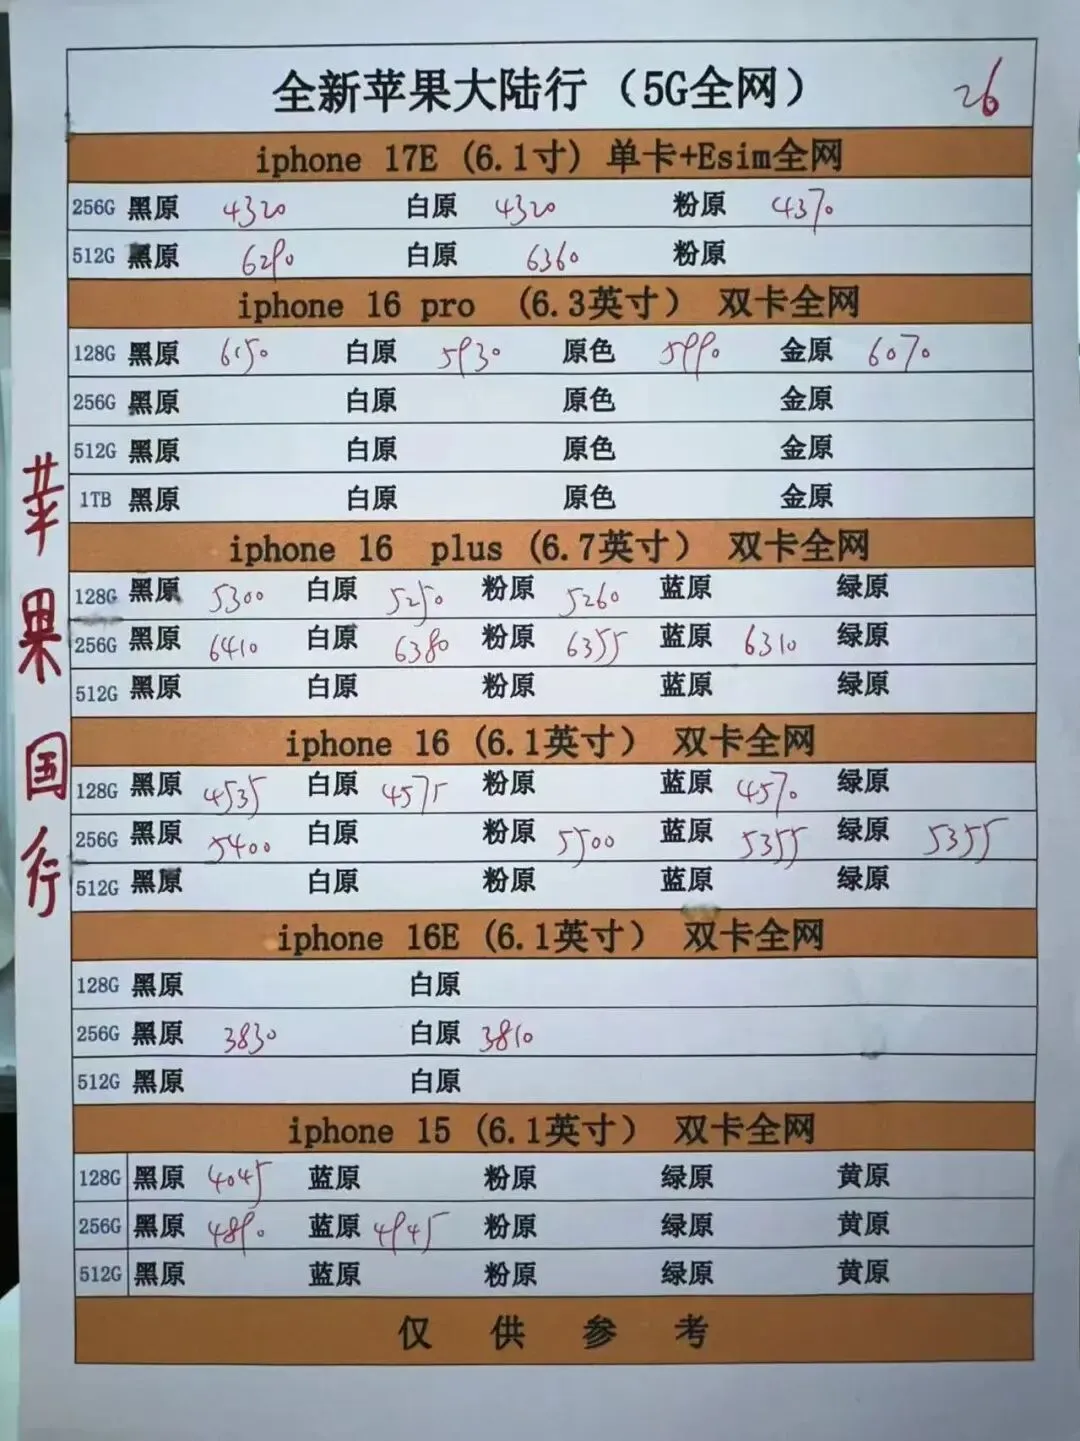 全新苹果大陆行（5G全网） 26
iphone 17E (6.1寸) 单卡+Esim全网
256G 黑原 4320 白原 4320 粉原 4370
512G 黑原 6290 白原 6360 粉原
iphone 16 pro （6.3英寸） 双卡全网
128G 黑原 6150 白原 5930 原色 5990 金原 6070
256G 黑原 白原 原色 金原
512G 黑原 白原 原色 金原
1TB 黑原 白原 原色 金原
iphone 16 plus (6.7英寸） 双卡全网
128G 黑原 5300 白原 5250 粉原 5260 蓝原 绿原
256G 黑原 6410 白原 6380 粉原 6355 蓝原 6310 绿原
512G 黑原 白原 粉原 蓝原 绿原
iphone 16 (6.1英寸） 双卡全网
128G 黑原 4535 白原 4575 粉原 蓝原 4570 绿原
256G 黑原 5400 白原 粉原 5500 蓝原 5355 绿原 5355
512G 黑原 白原 粉原 蓝原 绿原
iphone 16E (6.1英寸） 双卡全网
128G 黑原 白原
256G 黑原 3830 白原 3810
512G 黑原 白原
iphone 15 (6.1英寸） 双卡全网
128G 黑原 4045 蓝原 粉原 绿原 黄原
256G 黑原 4890 蓝原 4945 粉原 绿原 黄原
512G 黑原 蓝原 粉原 绿原 黄原
仅 供 参 考
苹果国行